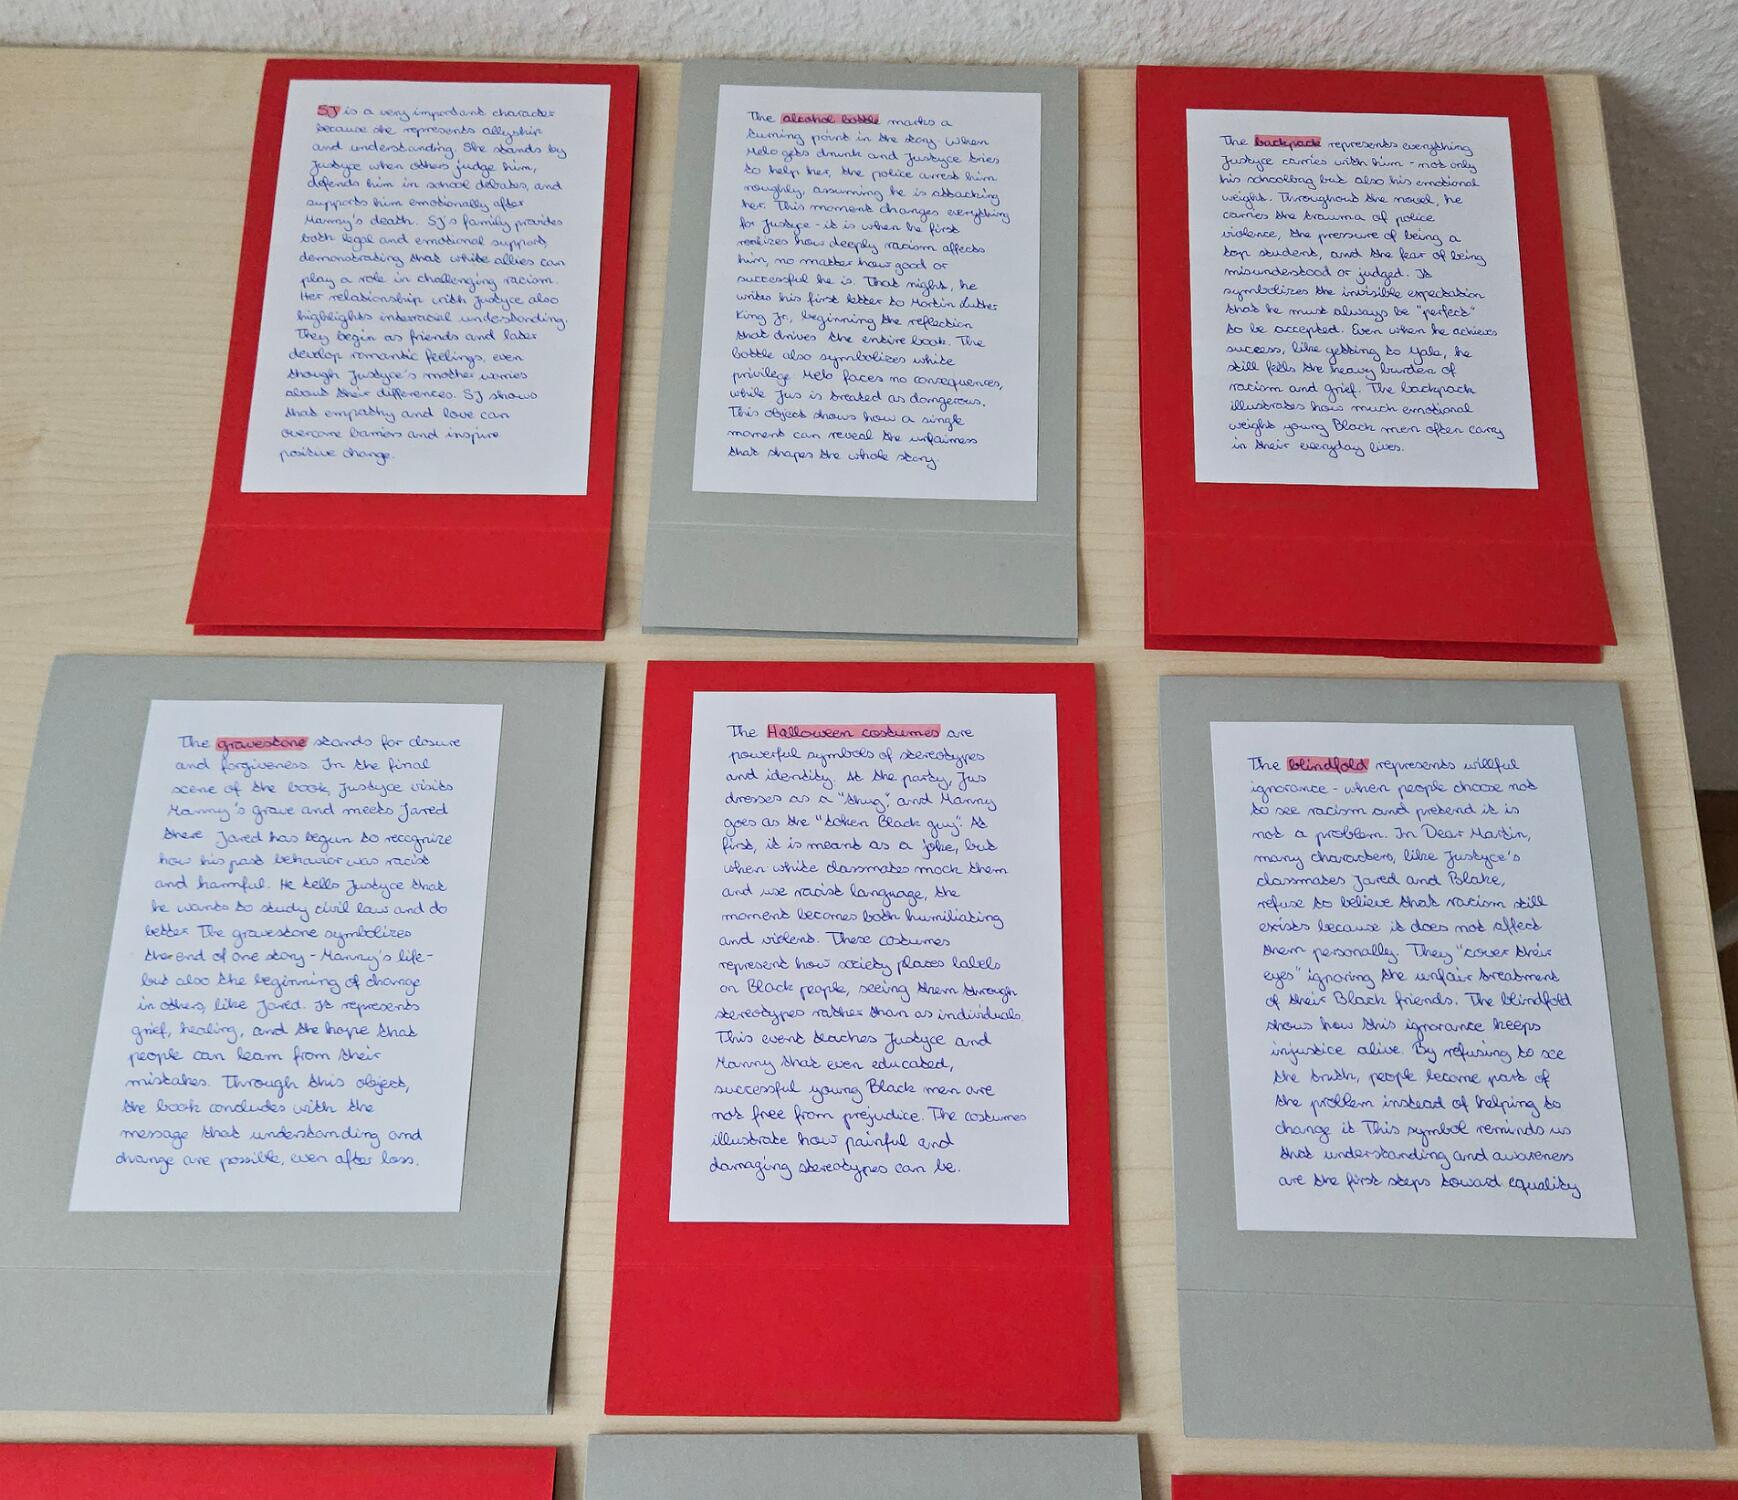 SJ is a very important character
because she represents allyship
and understanding. She stands by
Justyce when others judge him,
defends him in school debates, and
supports him emotionally after
Manny's death. SJ's family provides
both legal and emotional support,
demonstrating that white allies can
play a role in challenging racism.
Her relationship with Justyce also
highlights interracial understanding.
They begin as friends and later
develop romantic feelings, even
though Justyce's mother worries
about their differences. SJ shows
that empathy and love can
overcome barriers and inspire
positive change.
The alcohol bottle marks a
turning point in the story. When
Melo gets drunk and Justyce tries
to help her, the police arrest him
roughly, assuming he is attacking
her. This moment changes everything
for Justyce - it is when he first
realizes how deeply racism affects
him, no matter how good or
successful he is. That night, he
writes his first letter to Martin Luther
King Jr., beginning the reflection
that drives the entire book. The
bottle also symbolizes white
privilege: Melo faces no consequences,
while Jus is treated as dangerous.
This object shows how a single
moment can reveal the unfairness
that shapes the whole story.
The backpack represents everything
Justyce carries with him - not only
his schoolbag but also his emotional
weight. Throughout the novel, he
carries the trauma of police
violence, the pressure of being a
top student, and the fear of being
misunderstood or judged. It
symbolizes the invisible expectation
that he must always be "perfect"
to be accepted. Even when he achieves
success, like getting to Yale, he
still feels the heavy burden of
racism and grief. The backpack
illustrates how much emotional
weight young Black men often carry
in their everyday lives.
The gravestone stands for closure
and forgiveness. In the final
scene of the book, Justyce visits
Manny's grave and meets Jared
there. Jared has begun to recognize
how his past behavior was racist
and harmful. He tells Justyce that
he wants to study civil law and do
better. The gravestone symbolizes
the end of one story - Manny's life -
but also the beginning of change
in others, like Jared. It represents
grief, healing, and the hope that
people can learn from their
mistakes. Through this object,
the book concludes with the
message that understanding and
change are possible, even after loss.
The Halloween costumes are
powerful symbols of stereotypes
and identity. At the party, Jus
dresses as a "thug", and Manny
goes as the "token Black guy". At
first, it is meant as a joke, but
when white classmates mock them
and use racist language, the
moment becomes both humiliating
and violent. These costumes
represent how society places labels
on Black people, seeing them through
stereotypes rather than as individuals.
This event teaches Justyce and
Manny that even educated,
successful young Black men are
not free from prejudice. The costumes
illustrate how painful and
damaging stereotypes can be.
The blindfold represents willful
ignorance - when people choose not
to see racism and pretend it is
not a problem. In Dear Martin,
many characters, like Justyce's
classmates Jared and Blake,
refuse to believe that racism still
exists because it does not affect
them personally. They "cover their
eyes" ignoring the unfair treatment
of their Black friends. The blindfold
shows how this ignorance keeps
injustice alive. By refusing to see
the truth, people become part of
the problem instead of helping to
change it. This symbol reminds us
that understanding and awareness
are the first steps toward equality